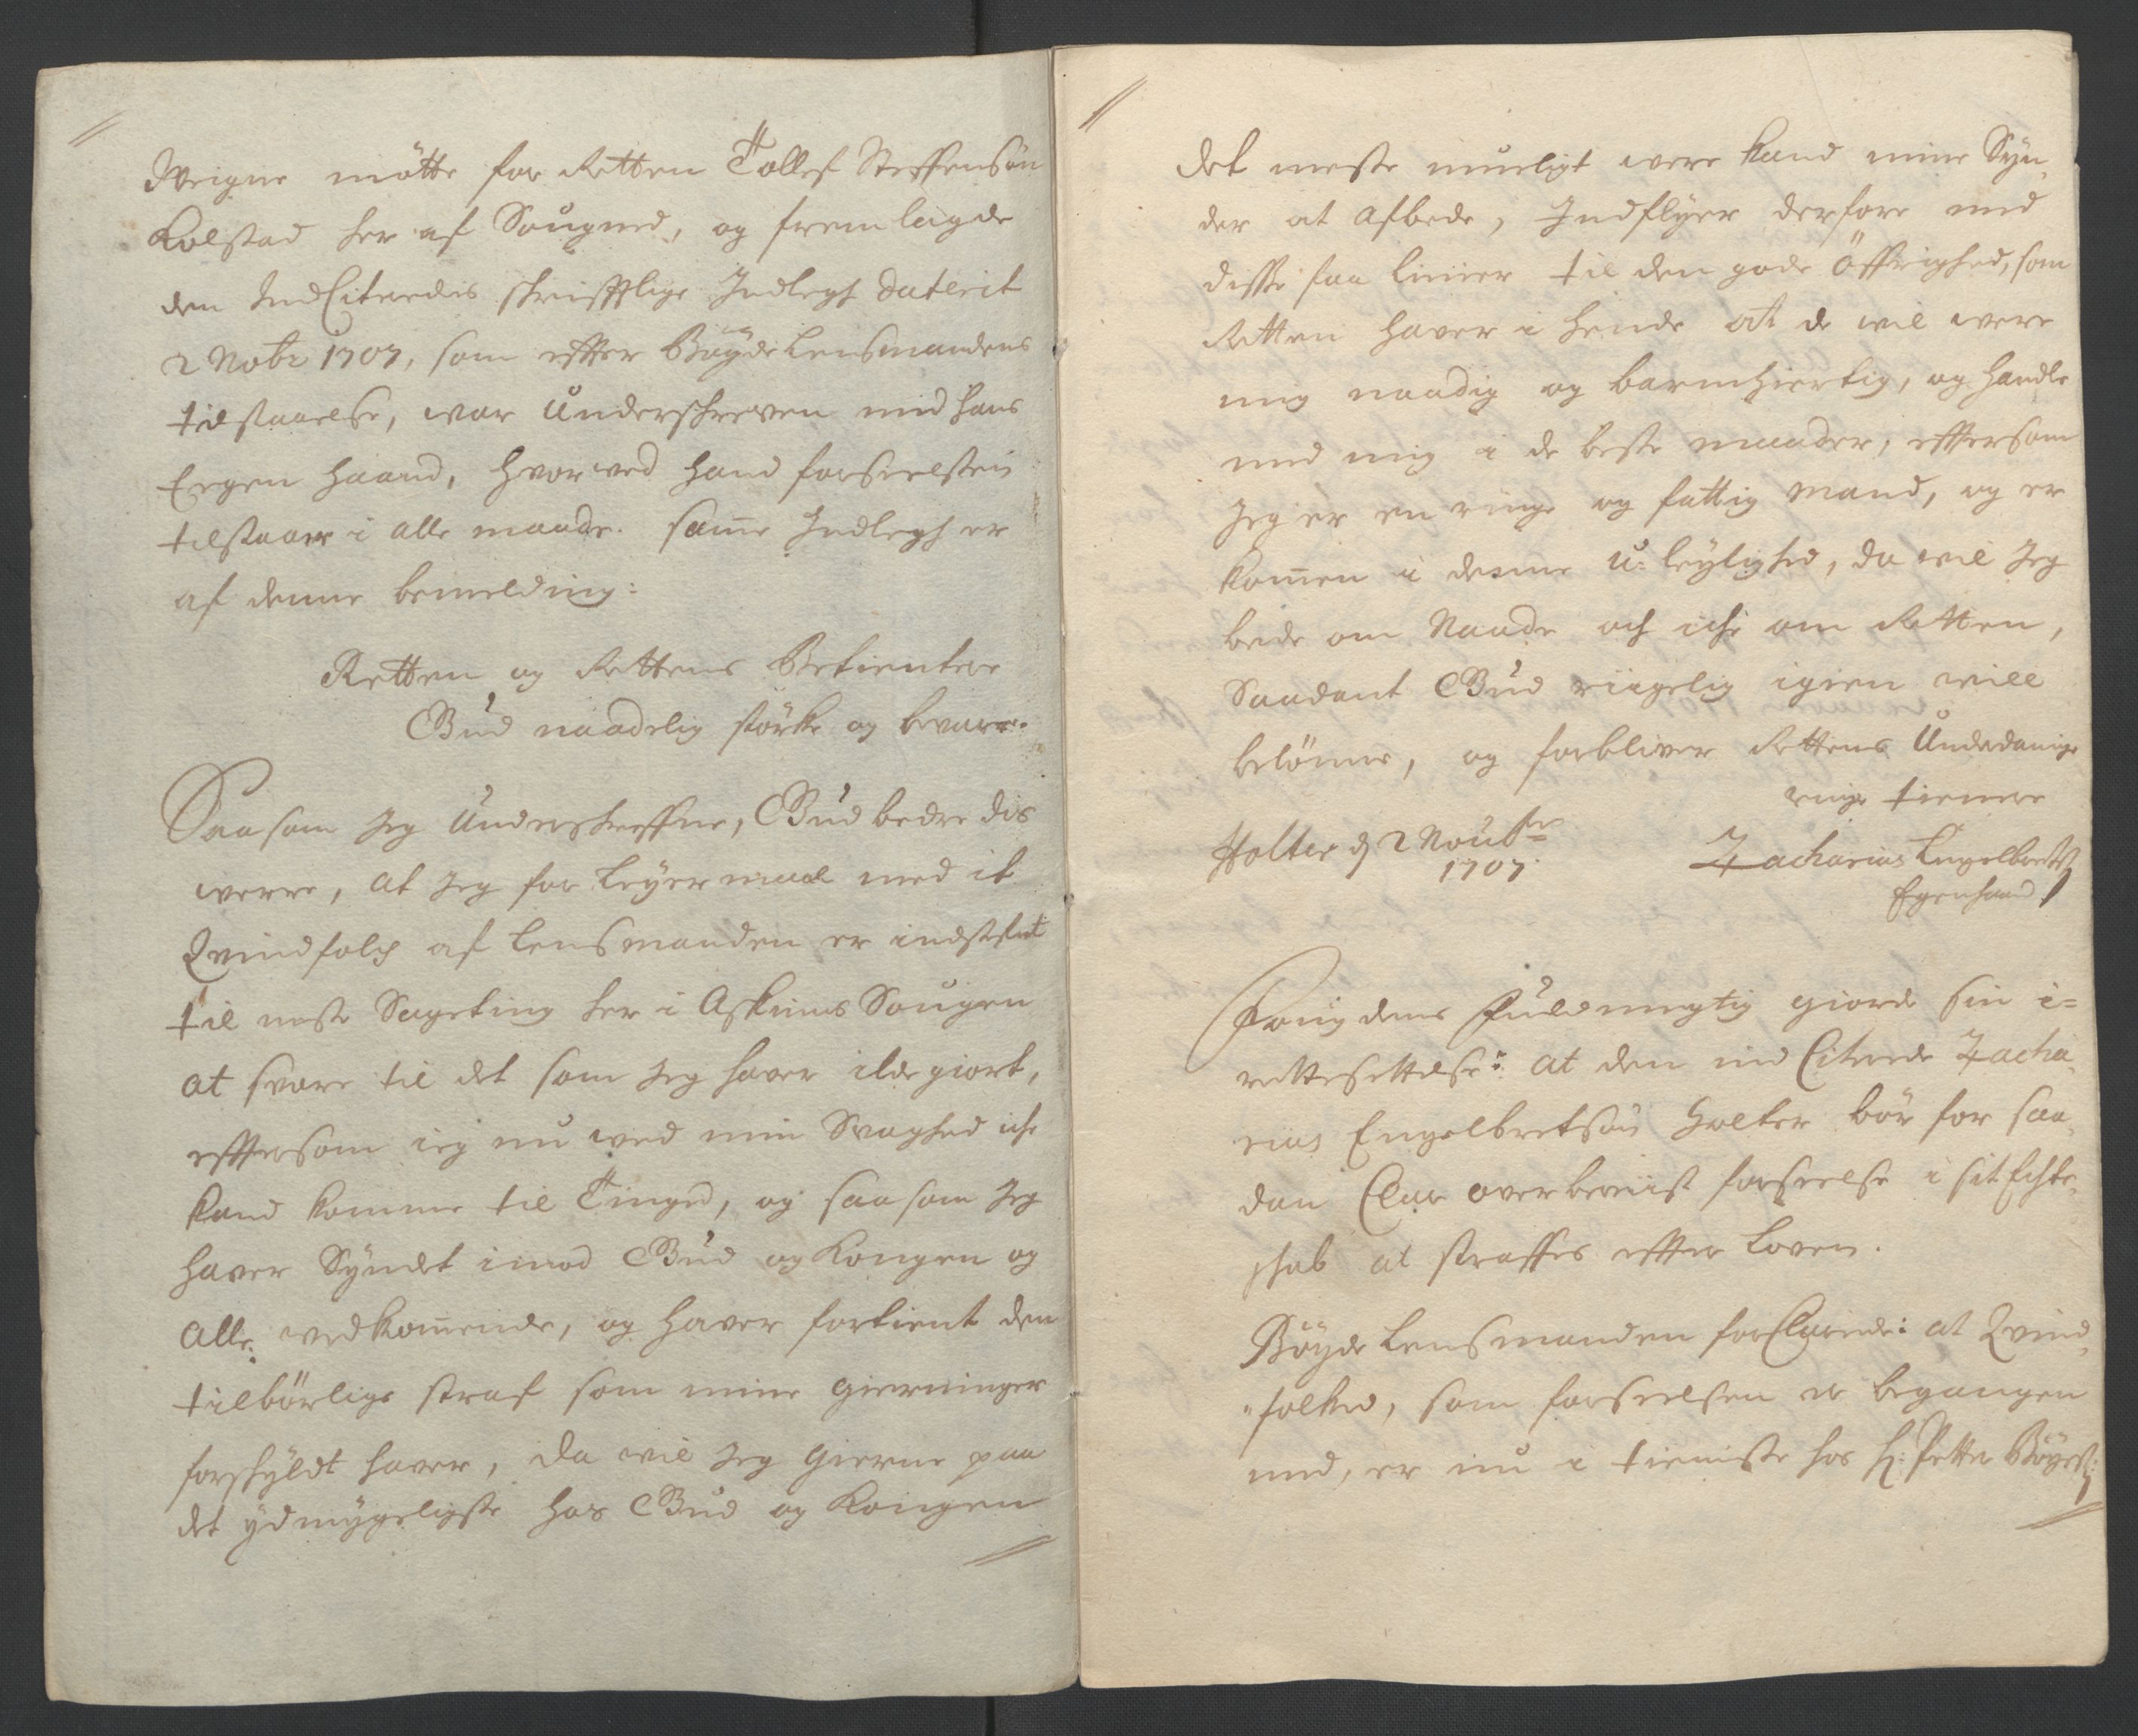 Weigne møtte for Retten Tollef Steffensøn
Kolstad her af Sougned, og fremlagde
den IndCiteredis skrifftlige Indlegh daterit
2 Nobr 1707, som effter Bøyde Lensmandens
tilstaaelse, war Underschreven med hans
Eegen haand, hvorved hand forseelsen
tilstaaer i alle maade. samme Indlegh er
af denne bemelding:
Retten og Rettens Betientere
Gud naadelig størke og bevare.
Saasom Jeg Underskreffne, Gud bedre dis
werre, at Jeg for Leyermaal med it
Qvindfolch af Lensmanden er indstefnt
til neste Sageting her i Askims Sougen
at svare til det som Jeg haver ilde giort,
efftersom ieg nu wed min Svaghed iche
kand komme til Tinged, og saasom Jeg
haver Syndet imod Gud og Kongen og
alle vedkommende, og haver fortient den
tilbørlige straf som mine gierninger
forschyldt haver, da wil Jeg gierne paa
det ydmygeligste hos Gud og Kongen
det meste mueligt were kand mine Syn
der at afbede, Indflyer derfore med
disse faa linier til den gode Øffrighed, som
Retten haver i hende at de wil were
mig naadig og barmhiertig, og handle
med mig i de beste maader, efftersom
Jeg er en ringe og fattig Mand, og er
kommen i denne u-leylighed, da wil Jeg
bede om Naade och iche om Retten,
Saadant Gud riigelig igien will
belønne, og forbliver Rettens Underdanige
ringe tienere
Holter d 2 Noubr
1707.
Zacharias Engelbrets
Egenhaand
Fougdens Fuldmegtig giorde sin i=
rettesettelse: at den ind Citerede Zacha
rias Engelbretsøn Holter bør for saa
dan Clar overbeviist forseelse i sit Echte
schab at straffes effter Loven.
Bøyde Lensmanden forClarede: at Qvind
folked, som forseelsen er begangen
med, er nu i tieniste hos H: Petter